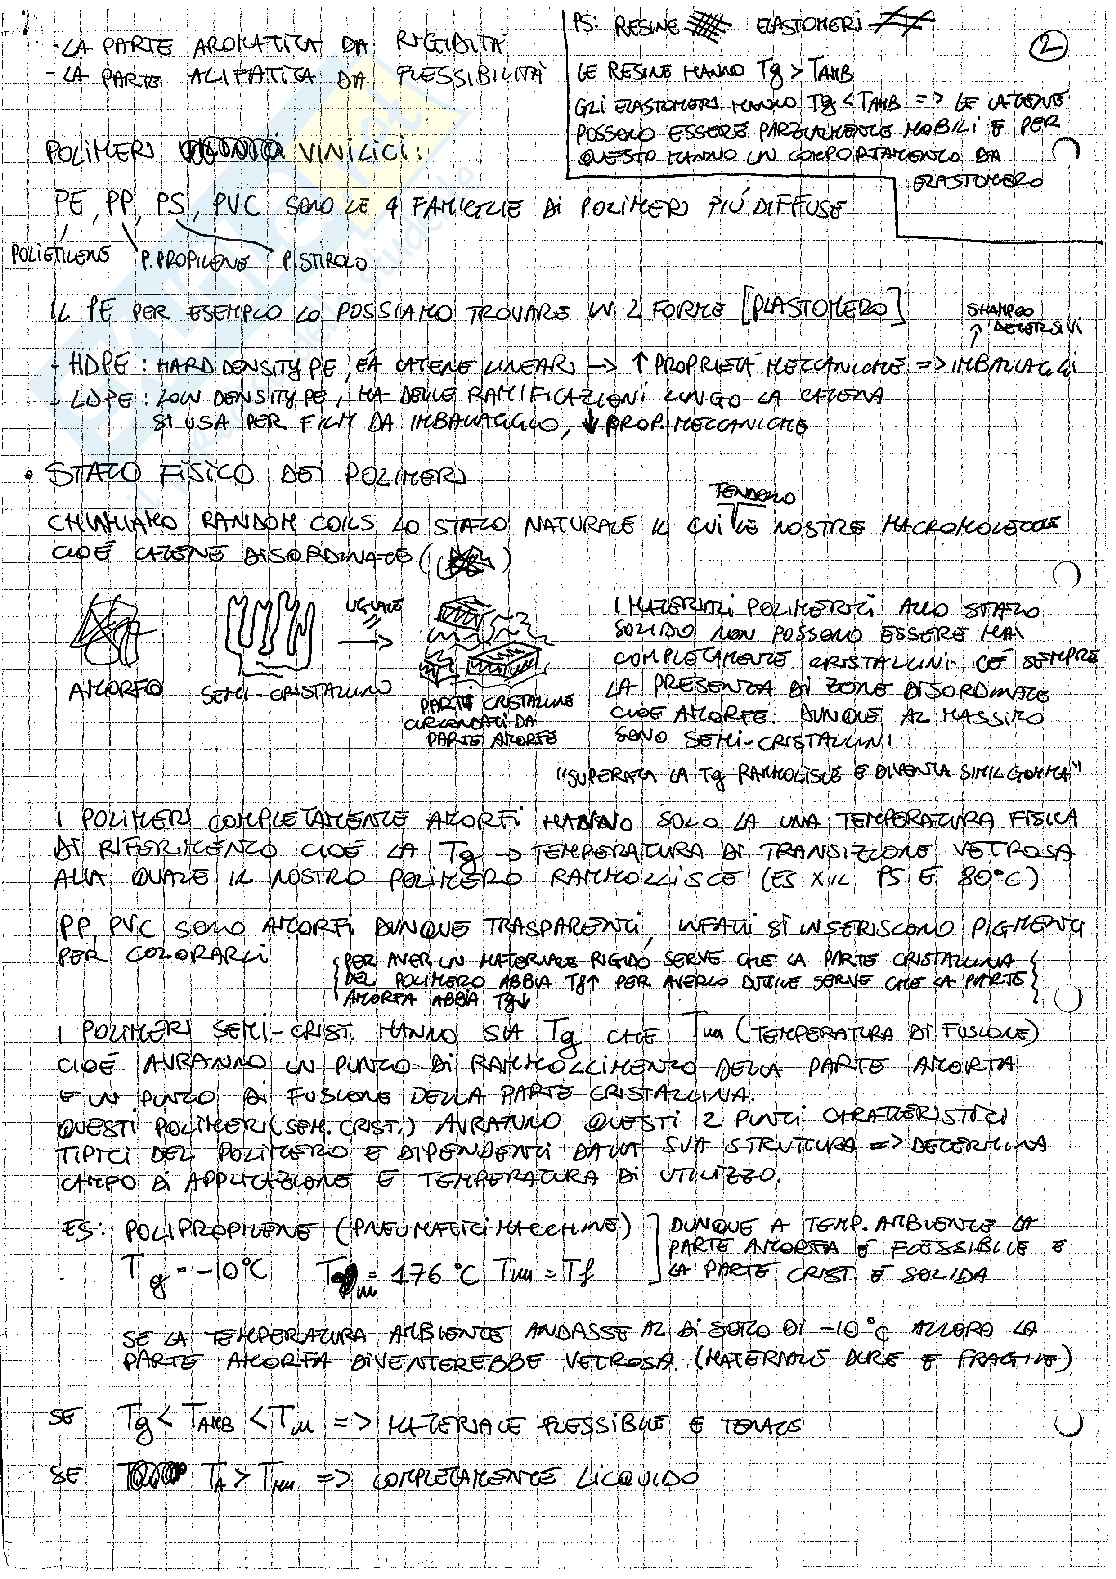 - LA PARTE AROMATICA DA RIGIDITÀ
- LA PARTE ALIFATICA DA FLESSIBILITÀ
PS: RESINE ELASTOMERI
2
LE RESINE HANNO Tg > TAMB
GLI ELASTOMERI HANNO Tg < TAMB => LE CATENE
POSSONO ESSERE PARZIALMENTE MOBILI E PER
QUESTO HANNO UN COMPORTAMENTO DA
ELASTOMERO
POLIMERI VINILICI:
PE, PP, PS, PVC SONO LE 4 FAMIGLIE DI POLIMERI PIÚ DIFFUSE
POLIETILENE P.PROPILENE P.STIROLO
IL PE PER ESEMPIO LO POSSIAMO TROVARE IN 2 FORME [PLASTOMERO]
SHAMPOO
↑ DETERSIVI
- HDPE: HARD DENSITY PE, È A CATENE LINEARI -> ↑ PROPRIETÀ MECCANICHE => IMBALLAGGI
- LDPE: LOW DENSITY PE, HA DELLE RAMIFICAZIONI LUNGO LA CATENA
SI USA PER FILM DA IMBALLAGGIO, ↓ PROP. MECCANICHE
• STATO FISICO DEI POLIMERI
TENDONO
CHIAMIAMO RANDOM COILS LO STATO NATURALE IL CUI LE NOSTRE MACROMOLECOLE
CIOÈ CATENE DISORDINATE ( )
UGUALE
AMORFO
SEMI-CRISTALLINO
PARTI CRISTALLINE
CIRCONDATI DA
PARTE AMORFE
I MATERIALI POLIMERICI ALLO STATO
SOLIDO NON POSSONO ESSERE MAI
COMPLETAMENTE CRISTALLINI. C'È SEMPRE
LA PRESENZA DI ZONE DISORDINATE
CIOÈ AMORFE. DUNQUE AL MASSIMO
SONO SEMI-CRISTALLINI
"SUPERATA LA Tg RAMMOLISCE E DIVENTA SIMIL GOMMA"
I POLIMERI COMPLETAMENTE AMORFI HANNO SOLO LA UNA TEMPERATURA FISICA
DI RIFERIMENTO CIOÈ LA Tg -> TEMPERATURA DI TRANSIZIONE VETROSA
ALLA QUALE IL NOSTRO POLIMERO RAMMOLLISCE (ES X IL PS È 80°C)
PP, PVC SONO AMORFI DUNQUE TRASPARENTI, INFATTI SI INSERISCONO PIGMENTI
PER COLORARLI
PER AVER UN MATERIALE RIGIDO SERVE CHE LA PARTE CRISTALLINA
DEL POLIMERO ABBIA Tg↑ PER AVERLO DUTTILE SERVE CHE LA PARTE
AMORFA ABBIA Tg↓
I POLIMERI SEMI-CRIST. HANNO SIA Tg CHE Tm (TEMPERATURA DI FUSIONE)
CIOÈ AVRANNO UN PUNTO DI RAMMOLLIMENTO DELLA PARTE AMORFA
E UN PUNTO DI FUSIONE DELLA PARTE CRISTALLINA.
QUESTI POLIMERI (SEM. CRIST.) AVRANNO QUESTI 2 PUNTI CARATTERISTICI
TIPICI DEL POLIMERO E DIPENDENTI DALLA SUA STRUTTURA => DETERMINA
CAMPO DI APPLICAZIONE E TEMPERATURA DI UTILIZZO.
ES: POLIPROPILENE (PNEUMATICI MACCHINE)
Tg = -10°C Tm = 176°C Tm = Tf
DUNQUE A TEMP. AMBIENTE LA
PARTE AMORFA È FLESSIBILE E
LA PARTE CRIST. È SOLIDA
SE LA TEMPERATURA AMBIENTE ANDASSE AL DI SOTTO DI -10°C ALLORA LA
PARTE AMORFA DIVENTEREBBE VETROSA (MATERIALE DURE E FRAGILE)
SE Tg < TAMB < Tm => MATERIALE FLESSIBILE E TENACE
SE TA > Tm => COMPLETAMENTE LIQUIDO